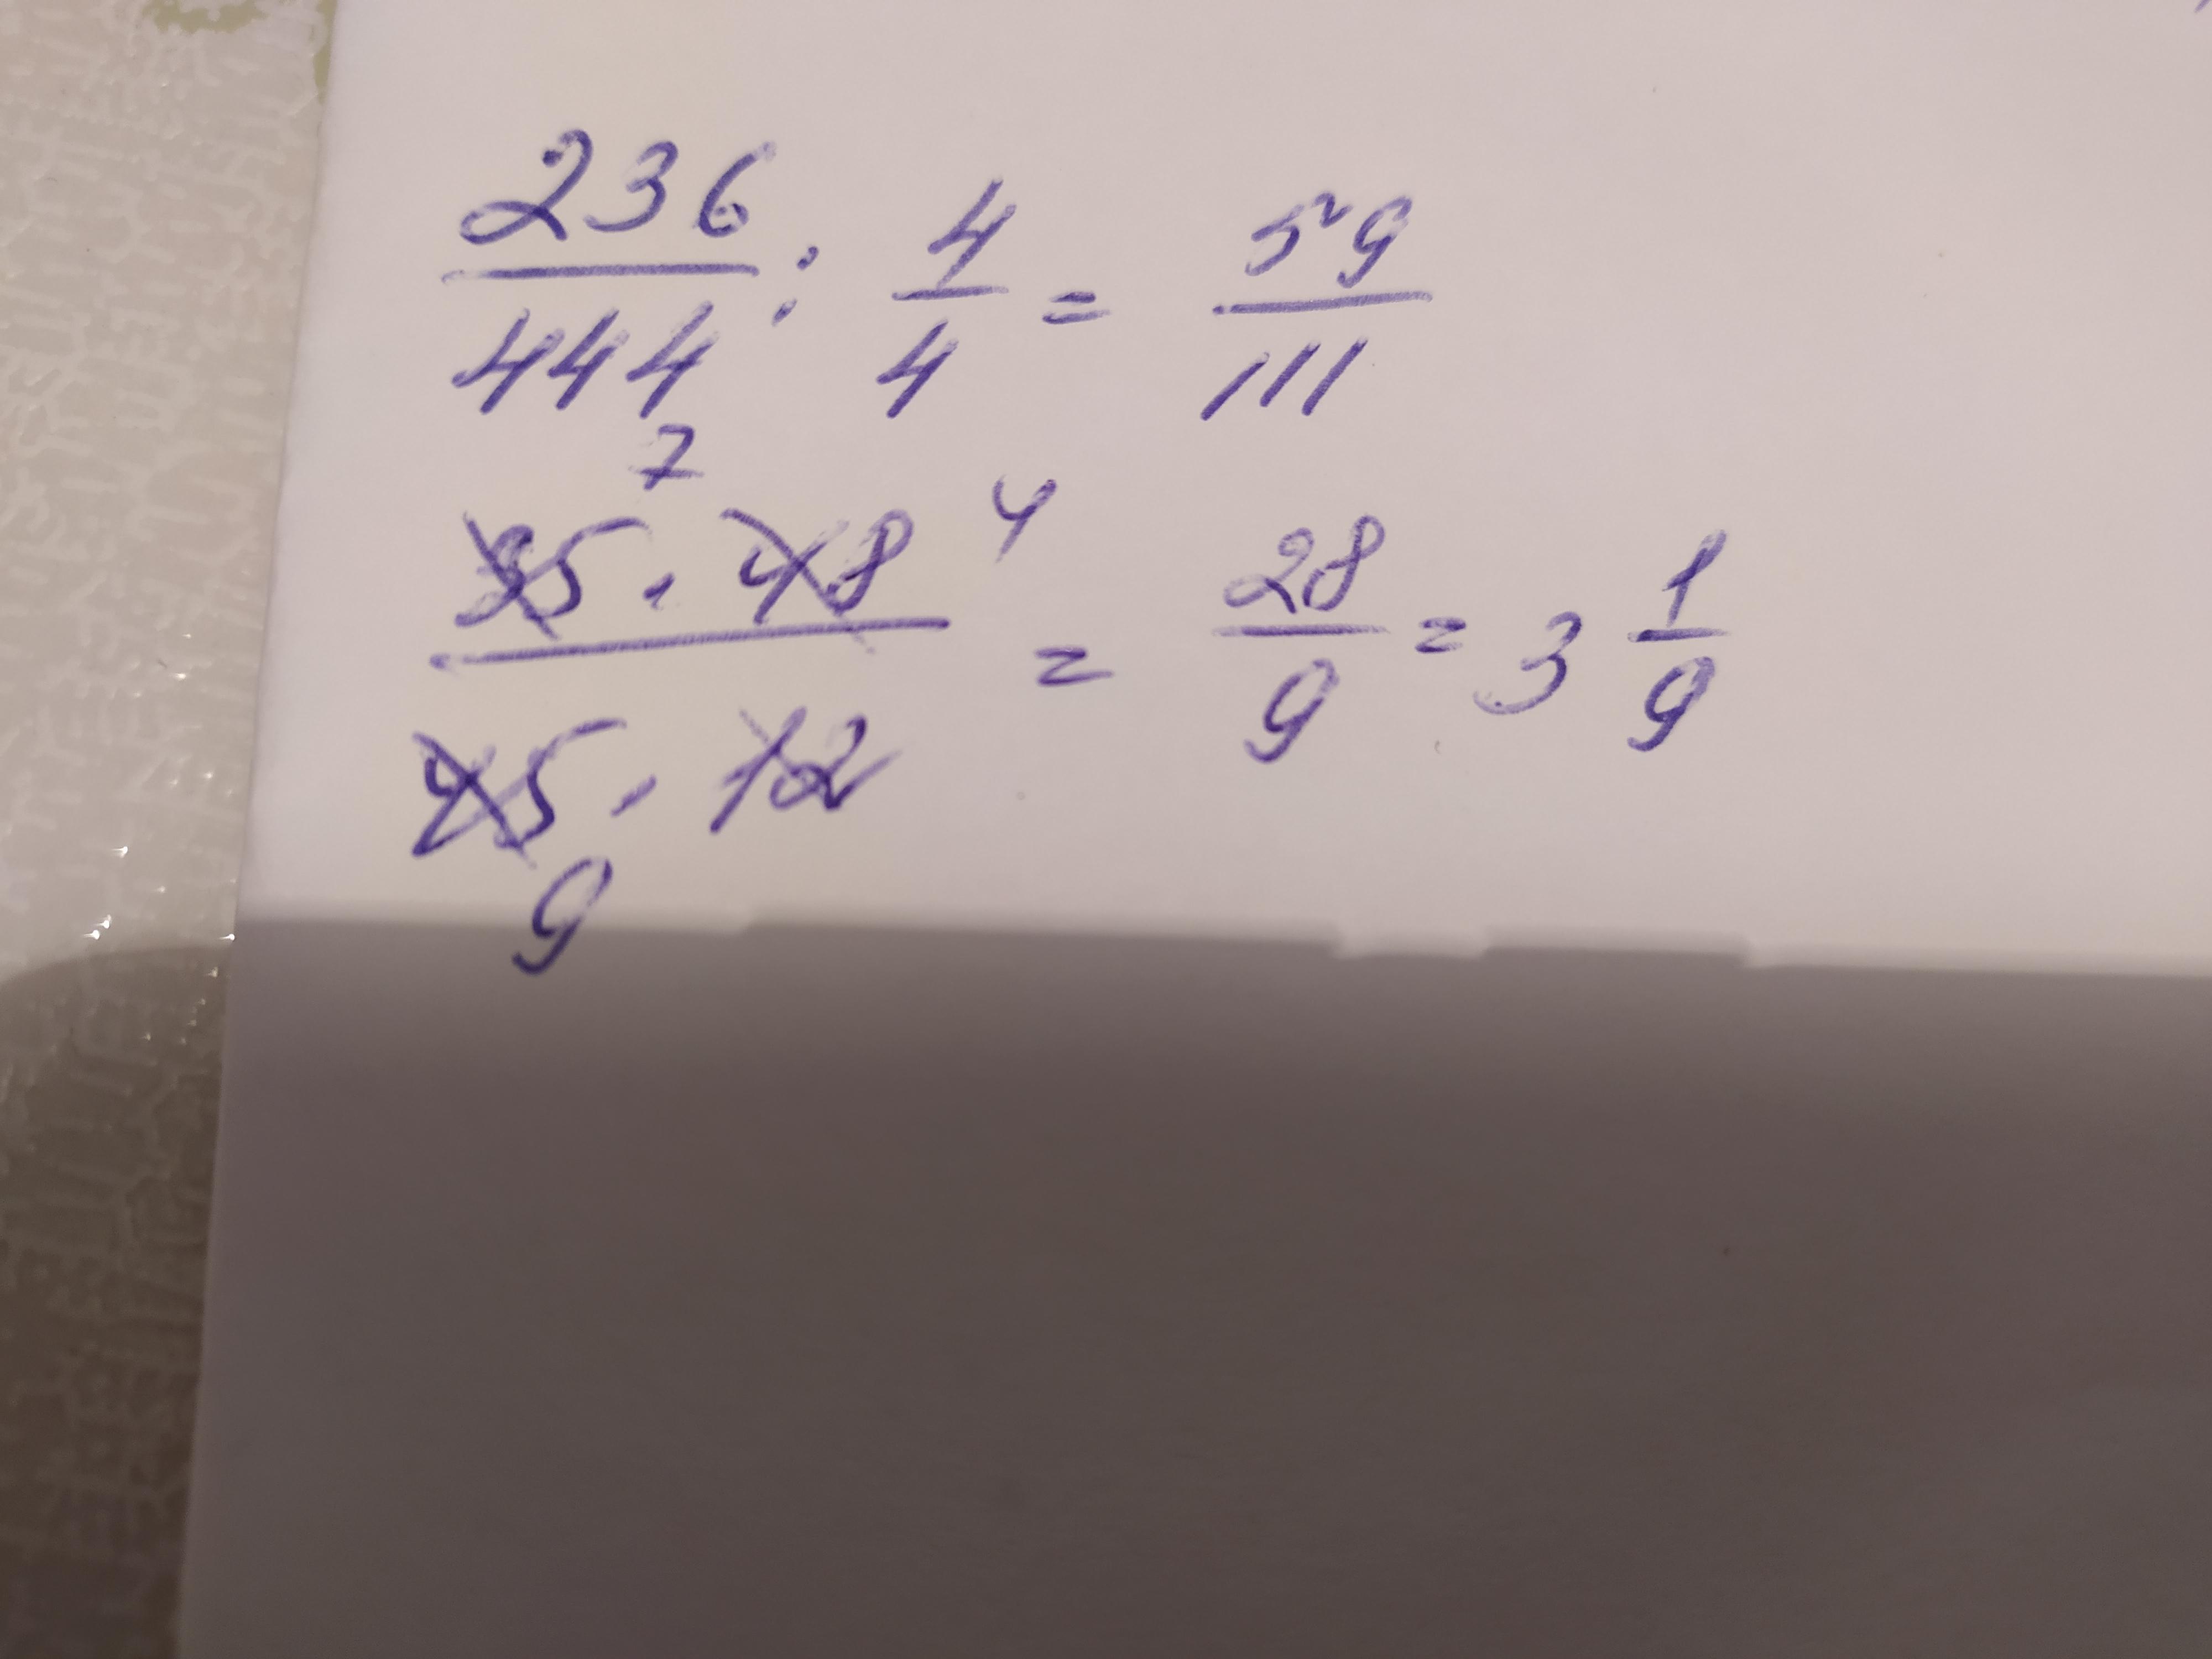 236/444 : 4/4 = 59/111
7 4
35 · 48 / 45 · 12 = 28/9 = 3 1/9
9